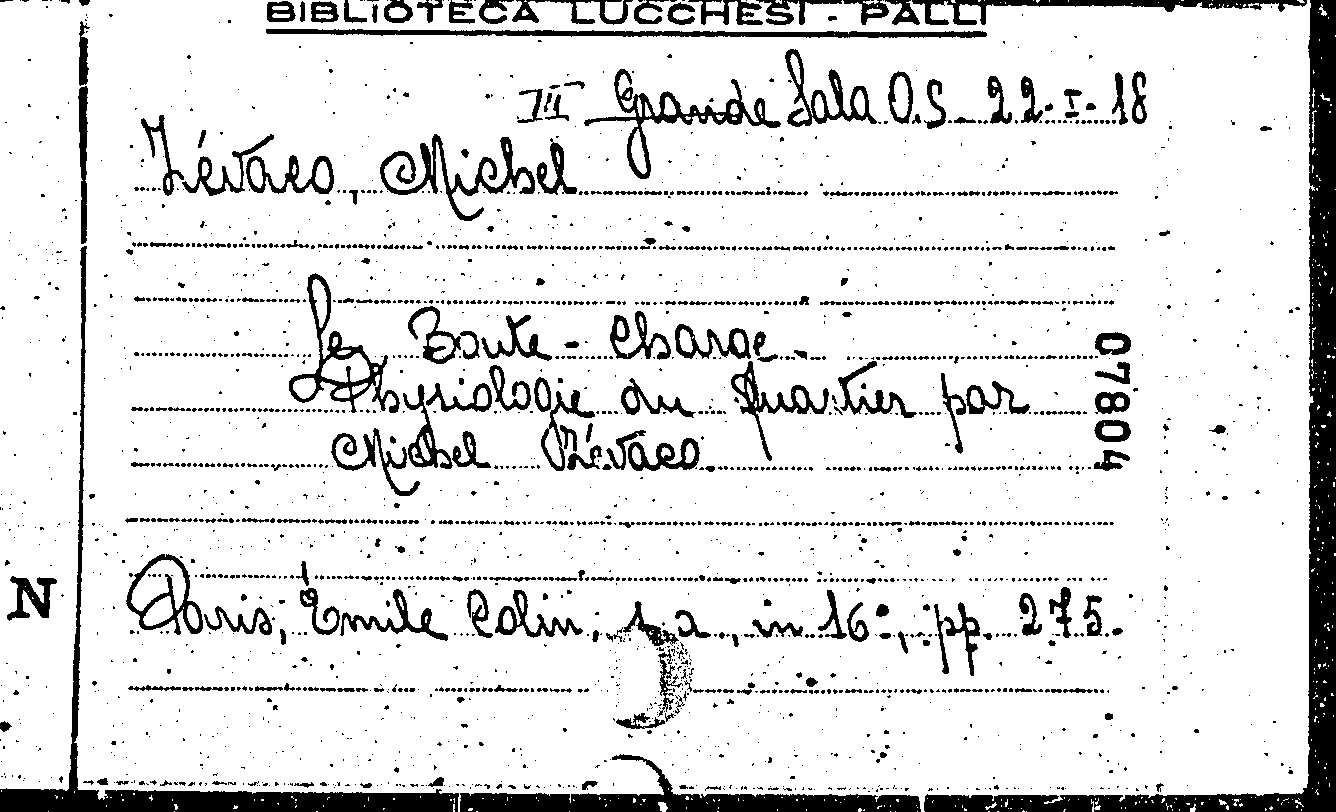 BIBLIOTECA LUCCHESI - PALLI
III Grande Sala O.S. 22-I-18
Zévaco, Michel
Le Boute-Charge.
Physiologie du Quartier par
Michel Zévaco.
07804
N
Paris, Émile Colin, s. a., in 16°, pp. 275.